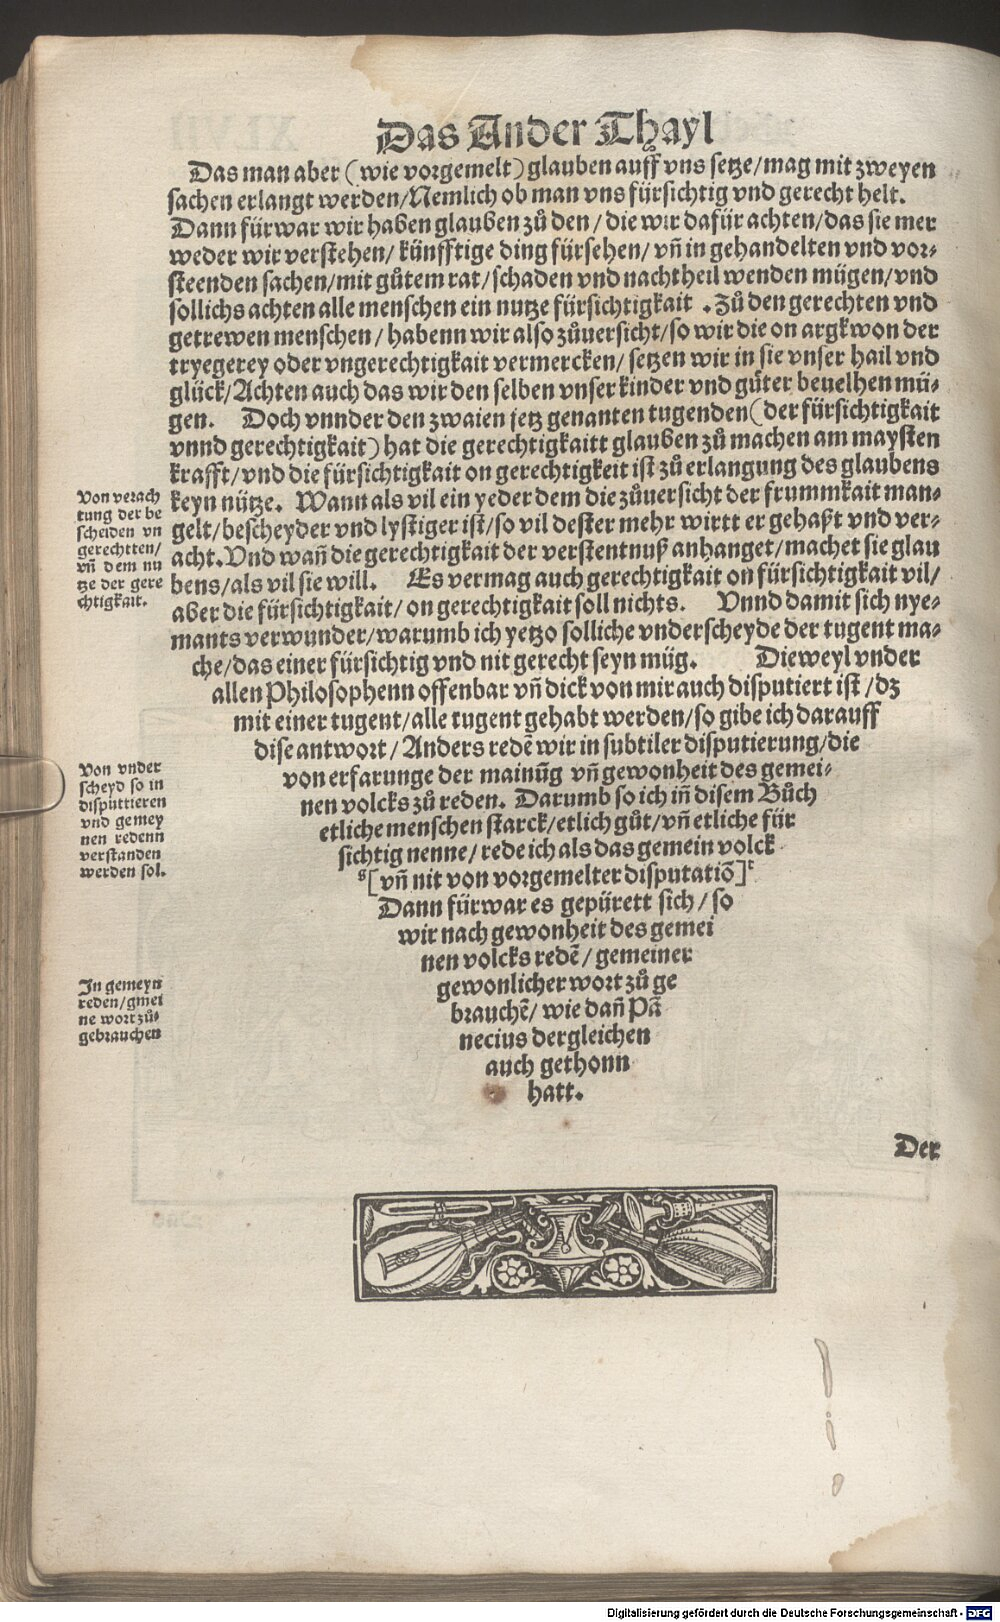 Das Ander Thayl
Das man aber (wie vorgemelt) glauben auff vns setze/mag mit zweyen
sachen erlangt werden/Nemlich ob man vns fürsichtig vnd gerecht helt.
Dann fürwar wir haben glauben zů den/die wir dafür achten/das sie mer
weder wir verstehen/künfftige ding fürsehen/vñ in gehandelten vnd vor⸗
steenden sachen/mit gůtem rat/schaden vnd nachtheil wenden mügen/vnd
sollichs achten alle menschen ein nutze fürsichtigkait .Zů den gerechten vnd
getrewen menschen/habenn wir also zůuersicht/so wir die on argkwon der
tryegerey oder vngerechtigkait vermercken/setzen wir in sie vnser hail vnd
glück/Achten auch das wir den selben vnser kinder vnd gůter beuelhen mü⸗
gen. Doch vnnder den zwaien jetz genanten tugenden(der fürsichtigkait
vnnd gerechtigkait) hat die gerechtigkaitt glauben zů machen am maysten
krafft/vnd die fürsichtigkait on gerechtigkeit ist zů erlangung des glaubens
keyn nütze. Wann als vil ein yeder dem die zůuersicht der frummkait man⸗
gelt/bescheyder vnd lystiger ist/so vil dester mehr wirtt er gehaßt vnd ver⸗
acht.Vnd wañ die gerechtigkait der verstentnuß anhanget/machet sie glau
bens/als vil sie will. Es vermag auch gerechtigkait on fürsichtigkait vil/
aber die fürsichtigkait/on gerechtigkait soll nichts. Vnnd damit sich nye⸗
mants verwunder/warumb ich yetzo solliche vnderscheyde der tugent ma⸗
che/das einer fürsichtig vnd nit gerecht seyn müg. Dieweyl vnder
allen Philosophenn offenbar vñ dick von mir auch disputiert ist/dz
mit einer tugent/alle tugent gehabt werden/so gibe ich darauff
dise antwort/Anders redẽ wir in subtiler disputierung/die
von erfarunge der mainũg vñ gewonheit des gemei⸗
nen volcks zů reden. Darumb so ich iñ disem Bůch
etliche menschen starck/etlich gůt/vñ etliche für
sichtig nenne/rede ich als das gemein volck
s[vñ nit von vorgemelter disputatiõ]t
Dann fürwar es gepürett sich/so
wir nach gewonheit des gemei
nen volcks redẽ/gemeiner
gewonlicher wort zů ge
brauchẽ/wie dañ Pã
necius dergleichen
auch gethonn
hatt.
Der
Von verach
tung der be
scheiden vn
gerechtten/
vñ dem nu
tze der gere
chtigkait.
Von vnder
scheyd so in
disputtieren
vnd gemey
nen redenn
verstanden
werden sol.
In gemeyn
reden/gmei
ne wort zů⸗
gebrauchen
Digitalisierung gefördert durch die Deutsche Forschungsgemeinschaft - DFG